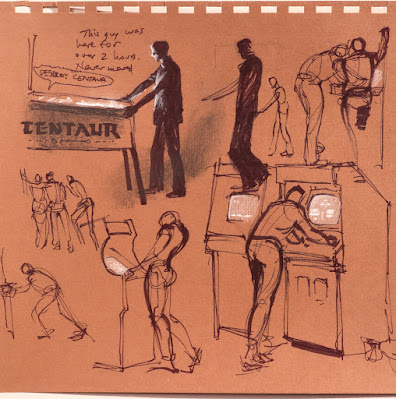 This guy was
here for
over 2 hours.
Never moved
DESTROY CENTAUR
CENTAUR